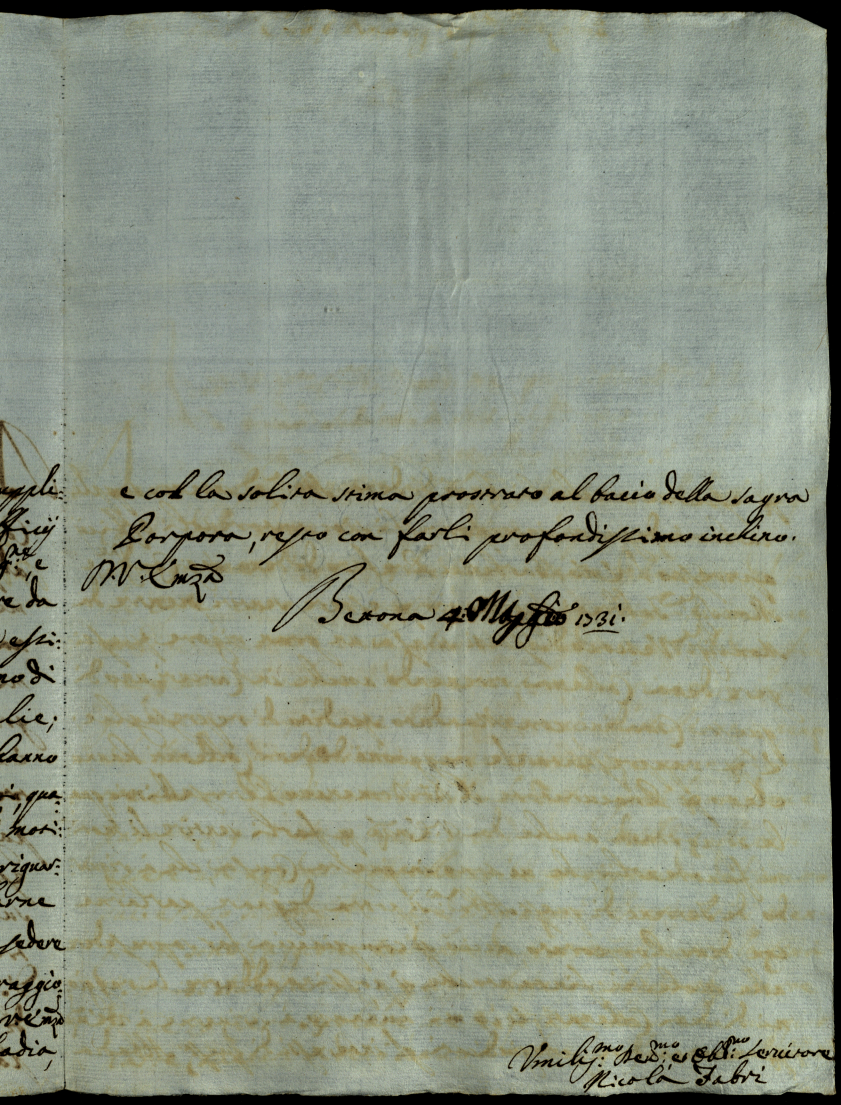 uppli:
fficij
e
re da
esti:
no di
lie;
hanno
qua
moti:
riguar:
arne
sedere
raggio:
adia,
e con la solita stima prostrato al bacio della sagra
Porpora, resto con farli profondissimo inchino.
D. V. Emza
Verona 4 Maggio 1731.
Umiliss:mo Dev:mo et Obb:mo Servitore
Nicolà Fabri